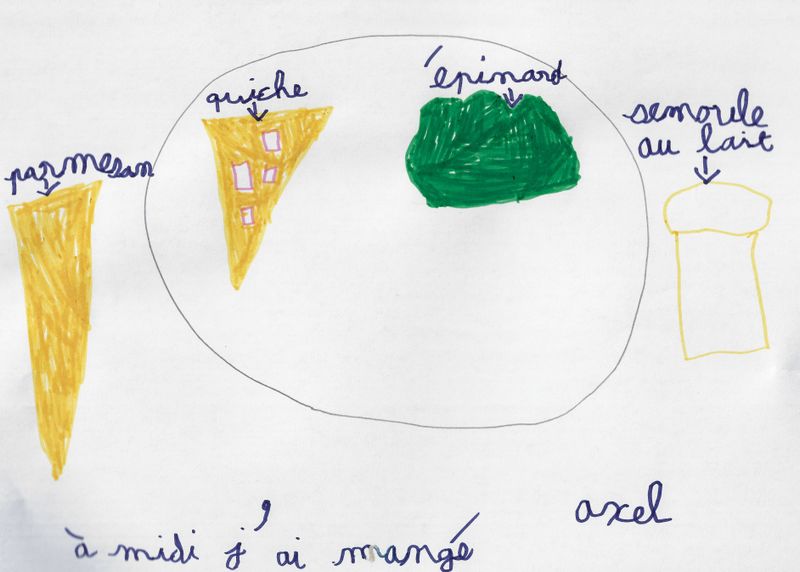 épinard
quiche
semoule
au lait
parmesan
axel
à midi j'ai mangé